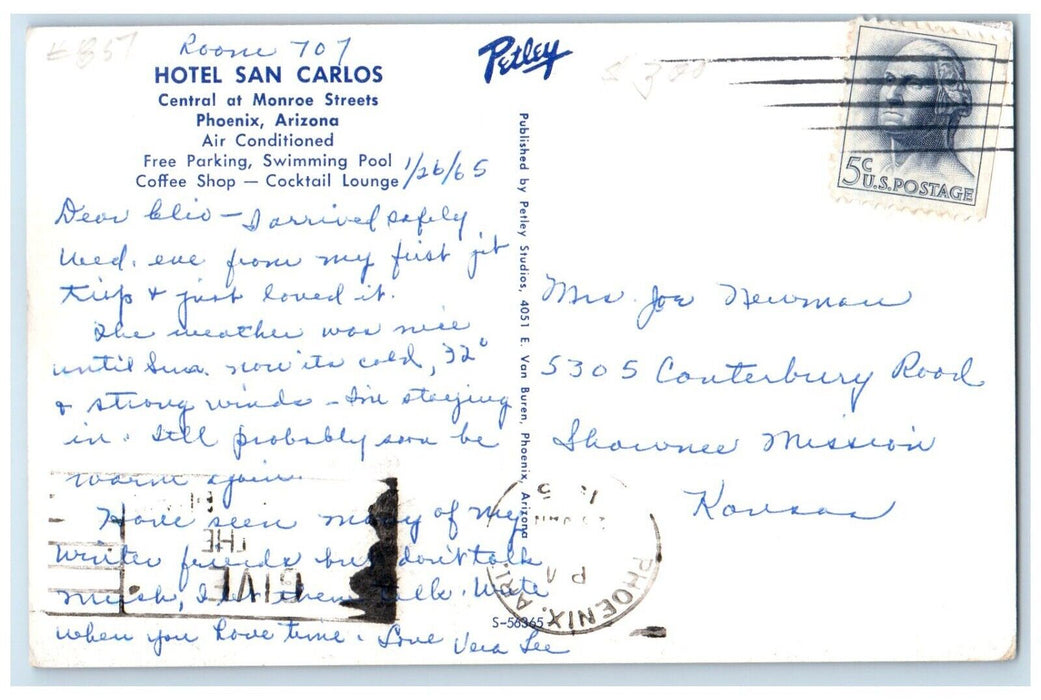 Room 707
HOTEL SAN CARLOS
Central at Monroe Streets
Phoenix, Arizona
Air Conditioned
Free Parking, Swimming Pool
Coffee Shop — Cocktail Lounge
1/26/65
Dear Clio - I arrived safely
Wed. eve from my first jit
trip & just loved it.
The weather was nice
until Sun. now its cold, 32°
& strong winds - I'm staying
in. It'll probably soon be
warm again.
Have seen many of my
writer friends but don't talk
much, I let them talk. Write
when you have time. Love Vera Lee
Petley
Published by Petley Studios, 4051 E. Van Buren, Phoenix, Arizona
S-56365
5c
U.S. POSTAGE
Mrs. Joe Newman
5305 Canterbury Road
Shawnee Mission
Kansas
PHOENIX, ARI
GIVE
THE